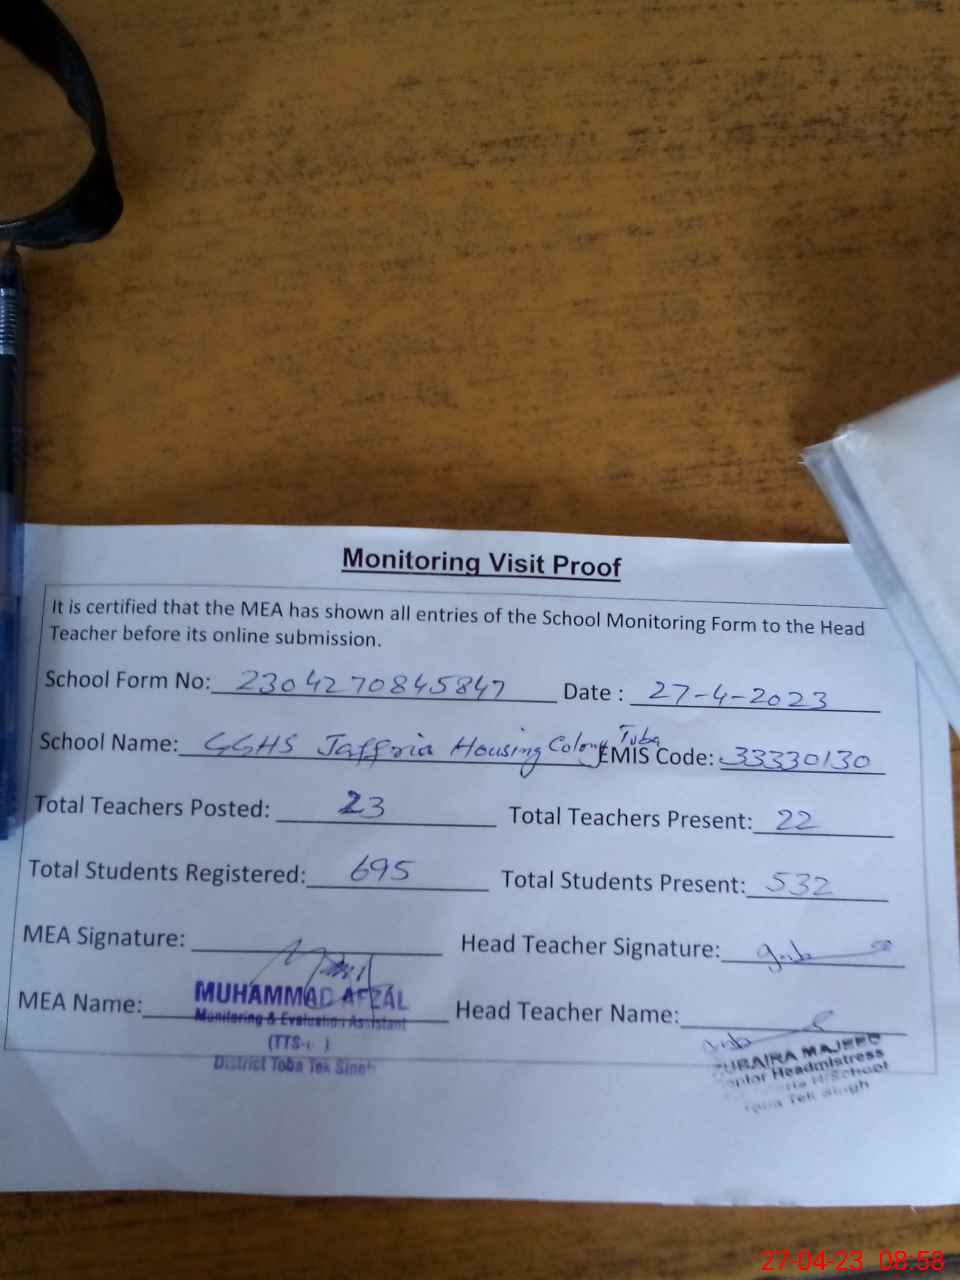 Monitoring Visit Proof
It is certified that the MEA has shown all entries of the School Monitoring Form to the Head
Teacher before its online submission.
School Form No: 2304270845847 Date : 27-4-2023
School Name: GGHS Jaffria Housing Colony Toba EMIS Code: 33330130
Total Teachers Posted: 23 Total Teachers Present: 22
Total Students Registered: 695 Total Students Present: 532
MEA Signature: Head Teacher Signature:
MEA Name: Head Teacher Name:
MUHAMMAD AFZAL
Monitoring & Evaluation Assistant
District Toba Tek Singh
ZUBAIRA MAJEED
Senior Headmistress
H/School
Toba Tek Singh
27-04-23 08:58